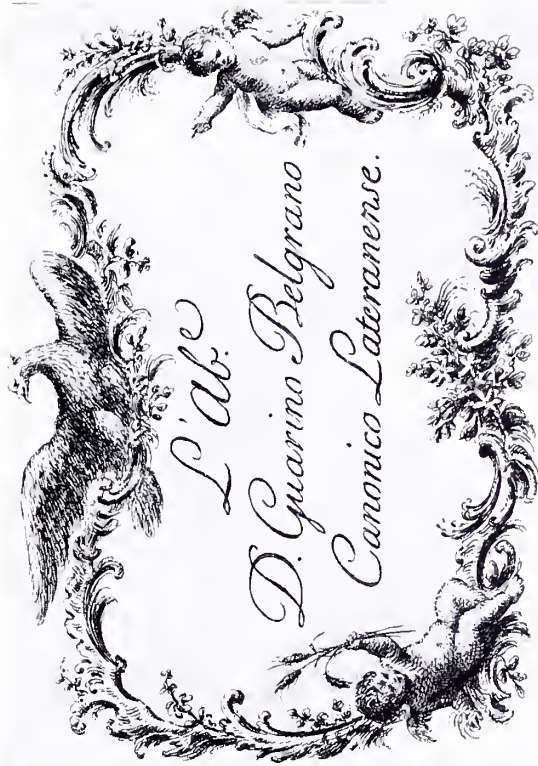 L'Ab.e
D. Guarino Belgrano
Canonico Lateranense.